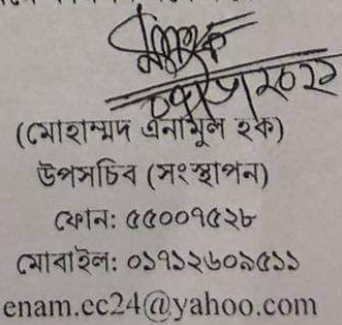 (মোহাম্মদ এনামুল হক)
উপসচিব (সংস্থাপন)
ফোন: ৫৫০০৭৫২৮
মোবাইল: ০১৭১২৬০৯৫১১
enam.cc24@yahoo.com